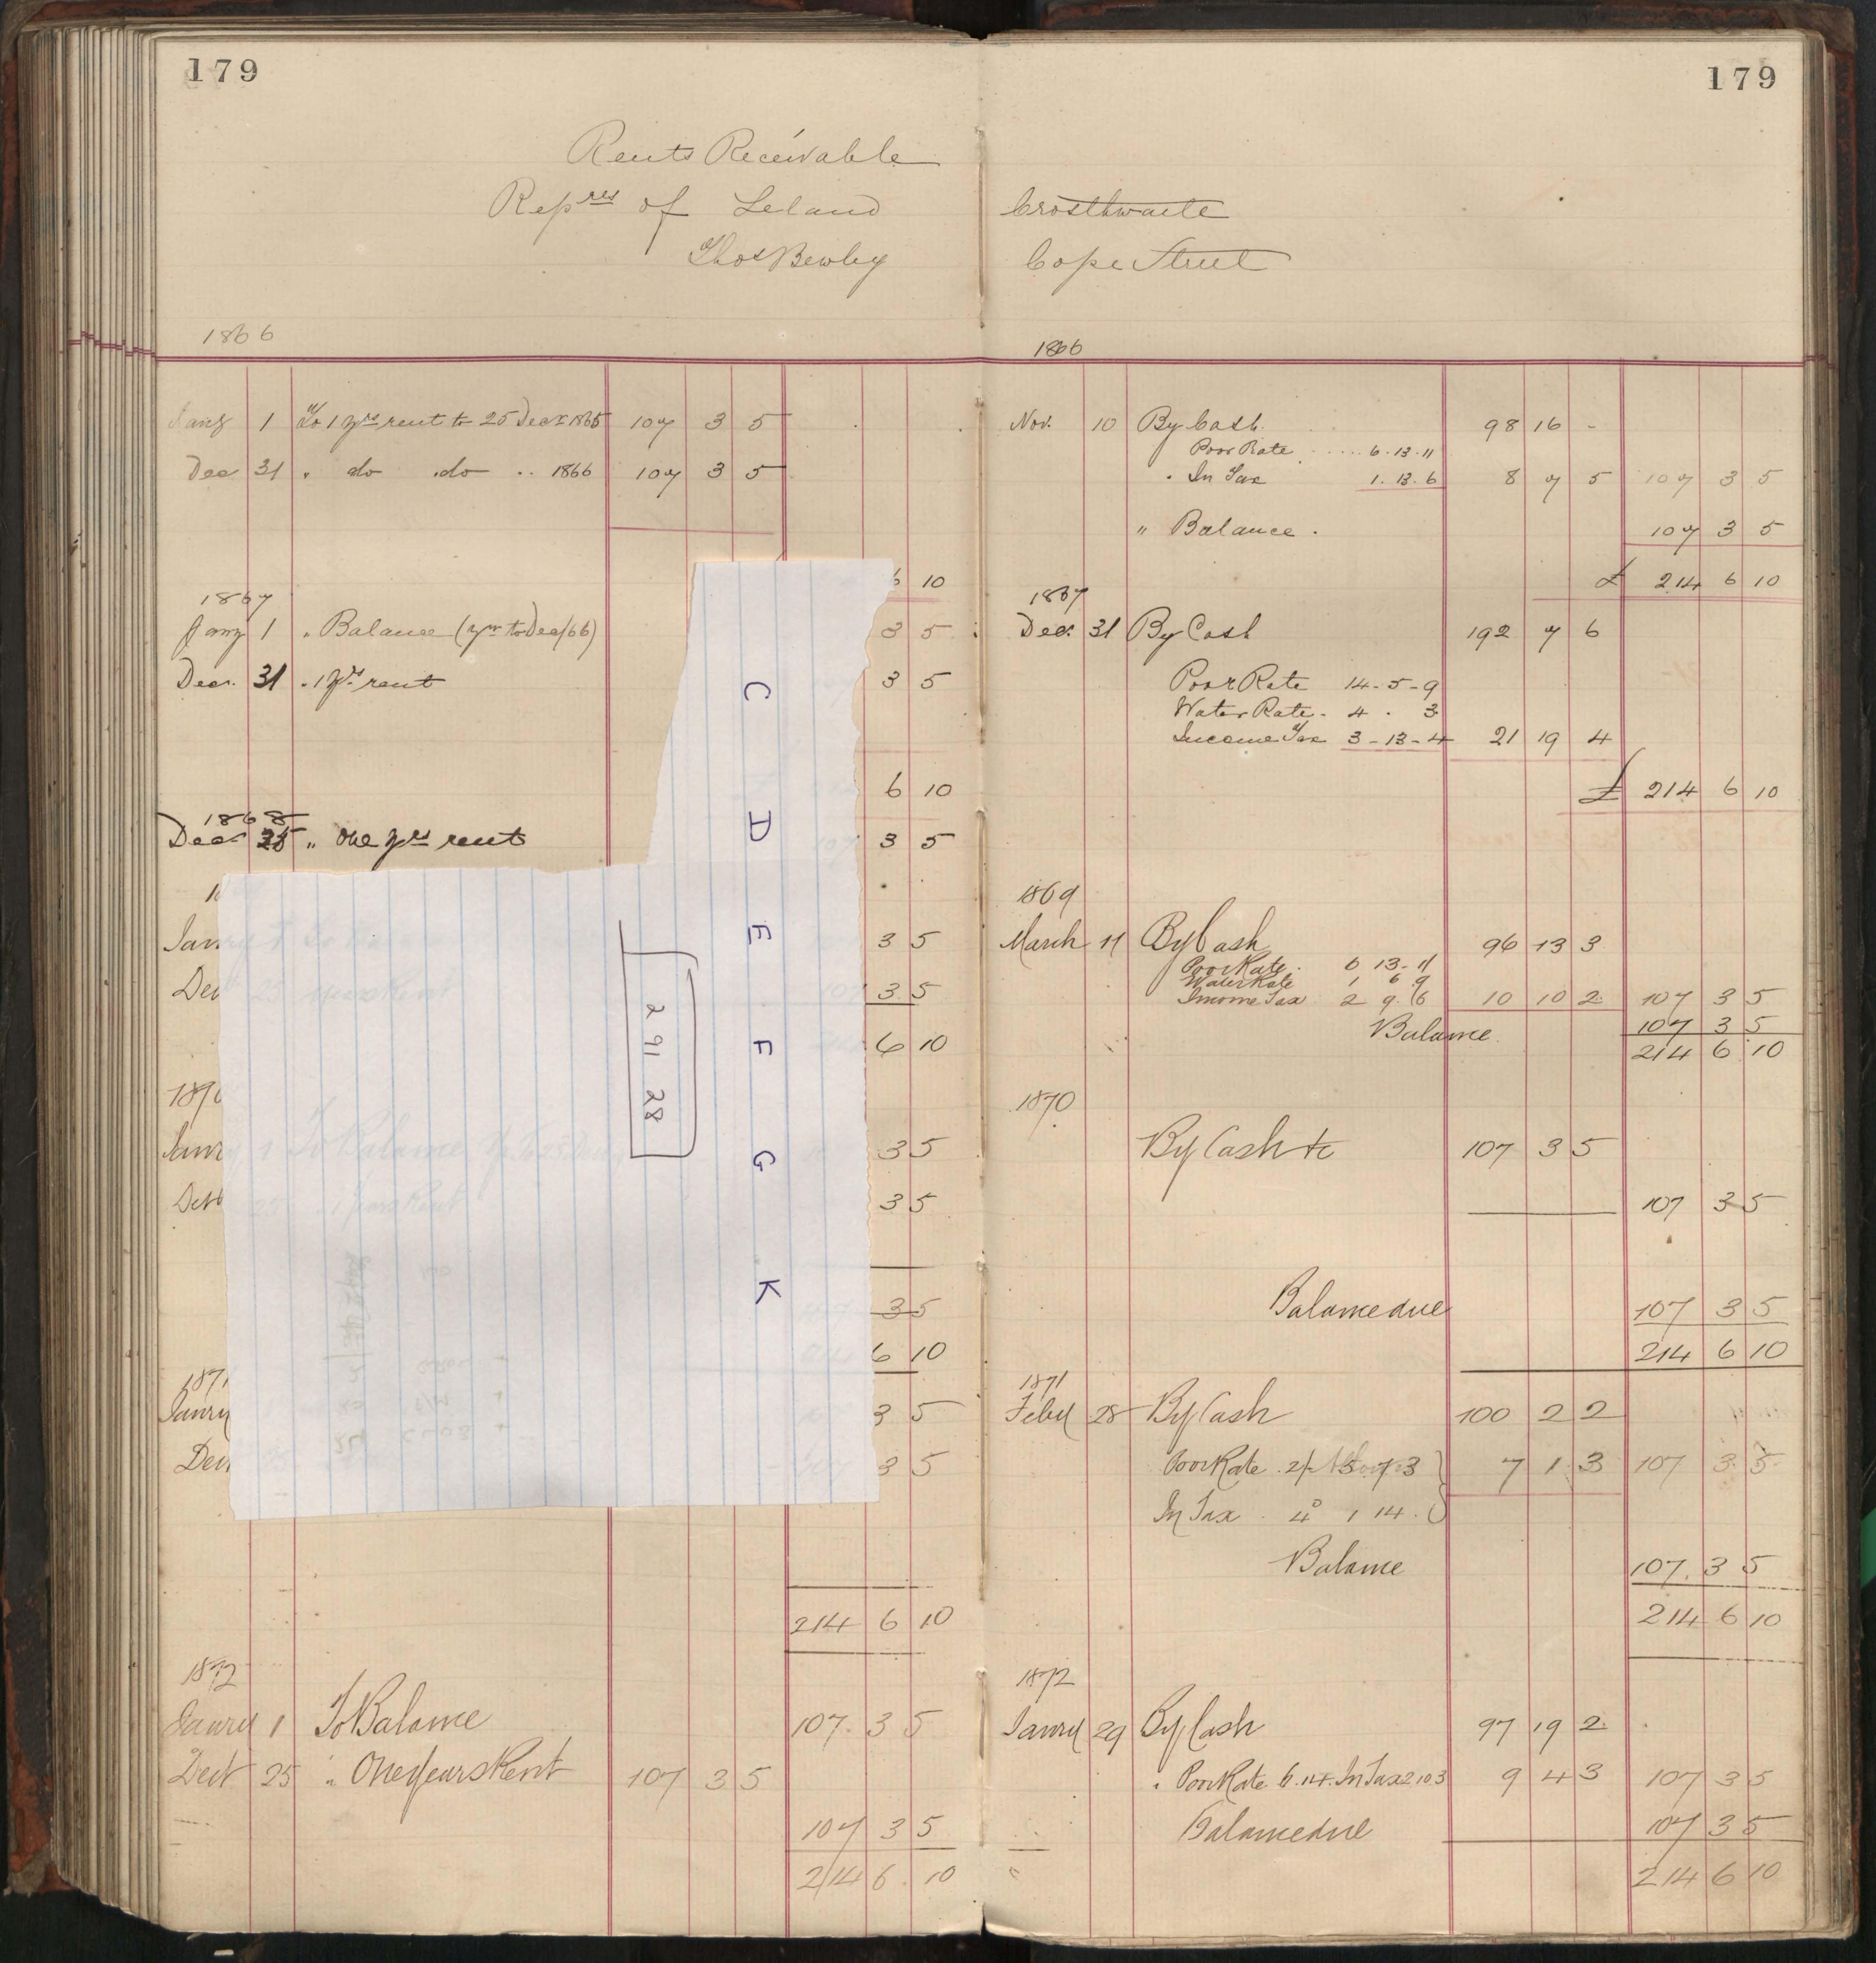 179
Rents Receivable
Repres of Leland
Thos Bewley
1866
Jany 1 To 1 yrs rent to 25 Decr 1865 107 3 5
Dec 31 " do do .. 1866 107 3 5
6 10
1867
Jany 1 " Balance (yr to Dec/66) 3 5
Decr. 31 " 1 yrs rent 3 5
6 10
1868
Decr 25 " One yrs rent 3 5
Jan 3 5
Dec 3 5
6 10
1870
Janry 3 5
3 5
3 5
6 10
1871
Janry 3 5
Dec 3 5
214 6 10
1872
Janry 1 To Balance 107 3 5
Dect 25 " One years Rent 107 3 5
107 3 5
214 6 10
C D E F G K
2 91 28
179
Crosthwaite
Cope Street
1866
Nov. 10 By Cash 98 16 -
Poor Rate 6.13.11
" In Tax 1.13.6 8 7 5 107 3 5
" Balance . 107 3 5
£ 214 6 10
1867
Decr 31 By Cash 192 7 6
Poor Rate 14-5-9
Water Rate. 4 . 3
Income Tax 3-13-4 21 19 4
£ 214 6 10
1869
March 11 By Cash 96 13 3
Poor Rate. 6 13-11
Water Rate 1 6 9
Income Tax 2 9.6 10 10 2 107 3 5
Balance 107 3 5
214 6 10
1870
By Cash &c 107 3 5
107 3 5
Balance due 107 3 5
214 6 10
1871
Feby 28 By Cash 100 2 2
Poor Rate 2/- 5 7 3 7 1 3 107 3 5
In Tax . 4d 1 14.
Balance 107. 3 5
214 6 10
1872
Janry 29 By Cash 97 19 2
" Poor Rate 6.14. In Tax 2 10 3 9 4 3 107 3 5
Balance due 107 3 5
214 6 10